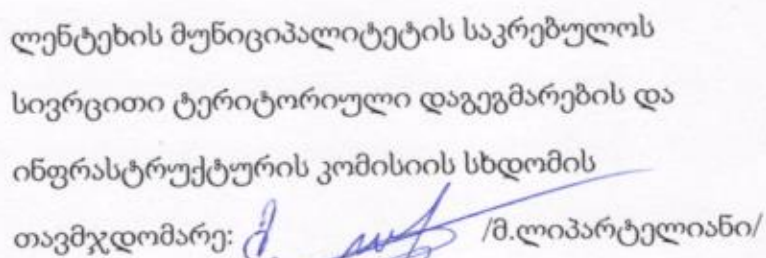 ლენტეხის მუნიციპალიტეტის საკრებულოს
სივრცითი ტერიტორიული დაგეგმარების და
ინფრასტრუქტურის კომისიის სხდომის
თავმჯდომარე: /მ.ლიპარტელიანი/